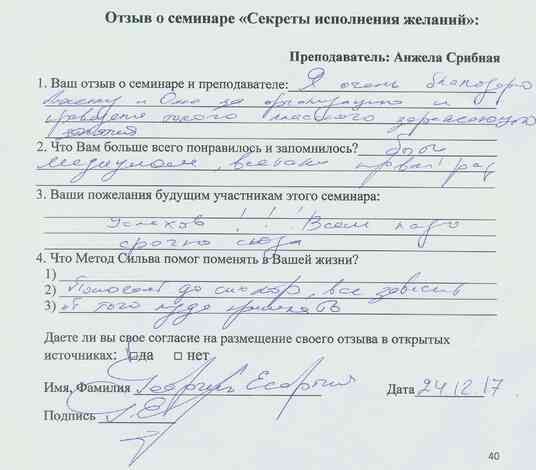 Отзыв о семинаре «Секреты исполнения желаний»:
Преподаватель: Анжела Срибная
1. Ваш отзыв о семинаре и преподавателе: Я очень благодарю
и за организацию и
такого классного
занятия
2. Что Вам больше всего понравилось и запомнилось? быть
медиумом, первый раз
3. Ваши пожелания будущим участникам этого семинара:
Успехов !!! Всем надо
срочно сюда
4. Что Метод Сильва помог поменять в Вашей жизни?
1)
2) Помогает до сих пор, все зависит
3) от того куда
Даете ли вы свое согласие на размещение своего отзыва в открытых
источниках: □да □ нет
Имя, Фамилия Георгий
Дата 24.12.17
Подпись
40